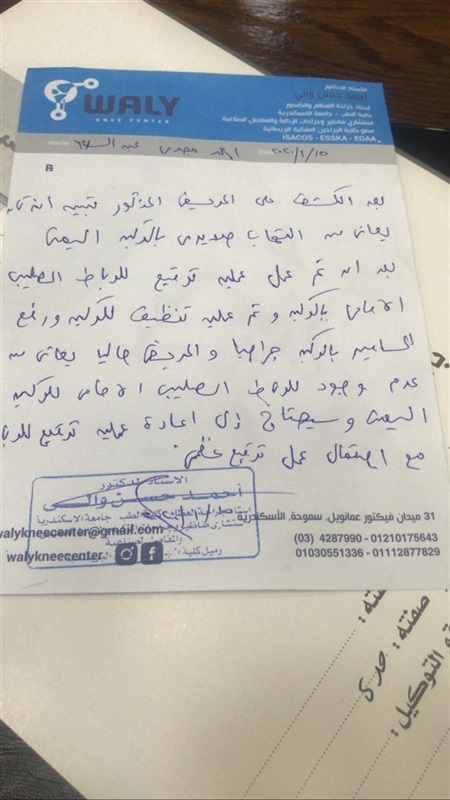 الأستاذ الدكتور
أحمد حسن والي
أستاذ جراحة العظام والكسور
كلية الطب - جامعة الأسكندرية
استشاري مناظير وجراحات الركبة والمفاصل الصناعية
عضو كلية الجراحين الملكية البريطانية
ISACOS - ESSKA - EGAA
WALY
KNEE CENTER
Name احمد مجدى عبد السلام
R
بعد الكشف على المريض المذكور تبين انه كان
يعانى من التهاب صديدى بالركبه اليمنى
بعد ان تم عمل عمليه ترقيع للرباط الصليبى
الامامى بالركبه و تم عمليه تنظيف للركبه و رفع
المسامير بالركبه جراحيا و المريض حاليا يعانى من
عدم وجود للرباط الصليبى الامامى للركبه
اليمنى و سيحتاج إلى اعادة عمليه ترقيع للرباط
مع احتمال عمل ترقيع عظمى
الاستاذ الدكتور
أحمد حسن والى
31 ميدان فيكتور عمانويل, سموحة, الأسكندرية
walykneecenter@gmail.com
(03) 4287990 - 01210175643
walykneecenter
01030551336 - 01112877829
صفته :
صفته : جدى
التوكيل :